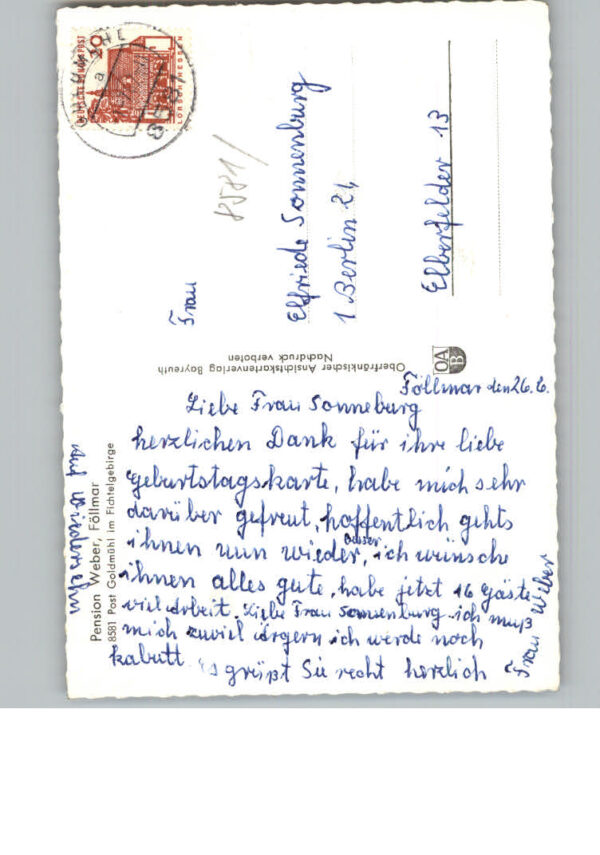 DEUTSCHE BUNDESPOST
20
LORSCH HESSEN
8581
8581/
Frau
Elfriede Sonnenburg
1 Berlin 21
Elberfelder 13
Oberfränkischer Ansichtskartenverlag Bayreuth
Nachdruck verboten
OA
B
Pension Weber, Föllmar
8581 Post Goldmühl im Fichtelgebirge
Föllmar den 26.6.
Liebe Frau Sonneburg
herzlichen Dank für ihre liebe
Geburtstagskarte, habe mich sehr
darüber gefreut, hoffentlich gehts
ihnen nun wieder besser, ich wünsche
ihnen alles gute, habe jetzt 16 Gäste
viel Arbeit. Liebe Frau Sonnenburg ich muß
mich zuviel ärgern ich werde noch
kabutt. es grüßt Sie recht herzlich
Frau Weber
auf widersehn